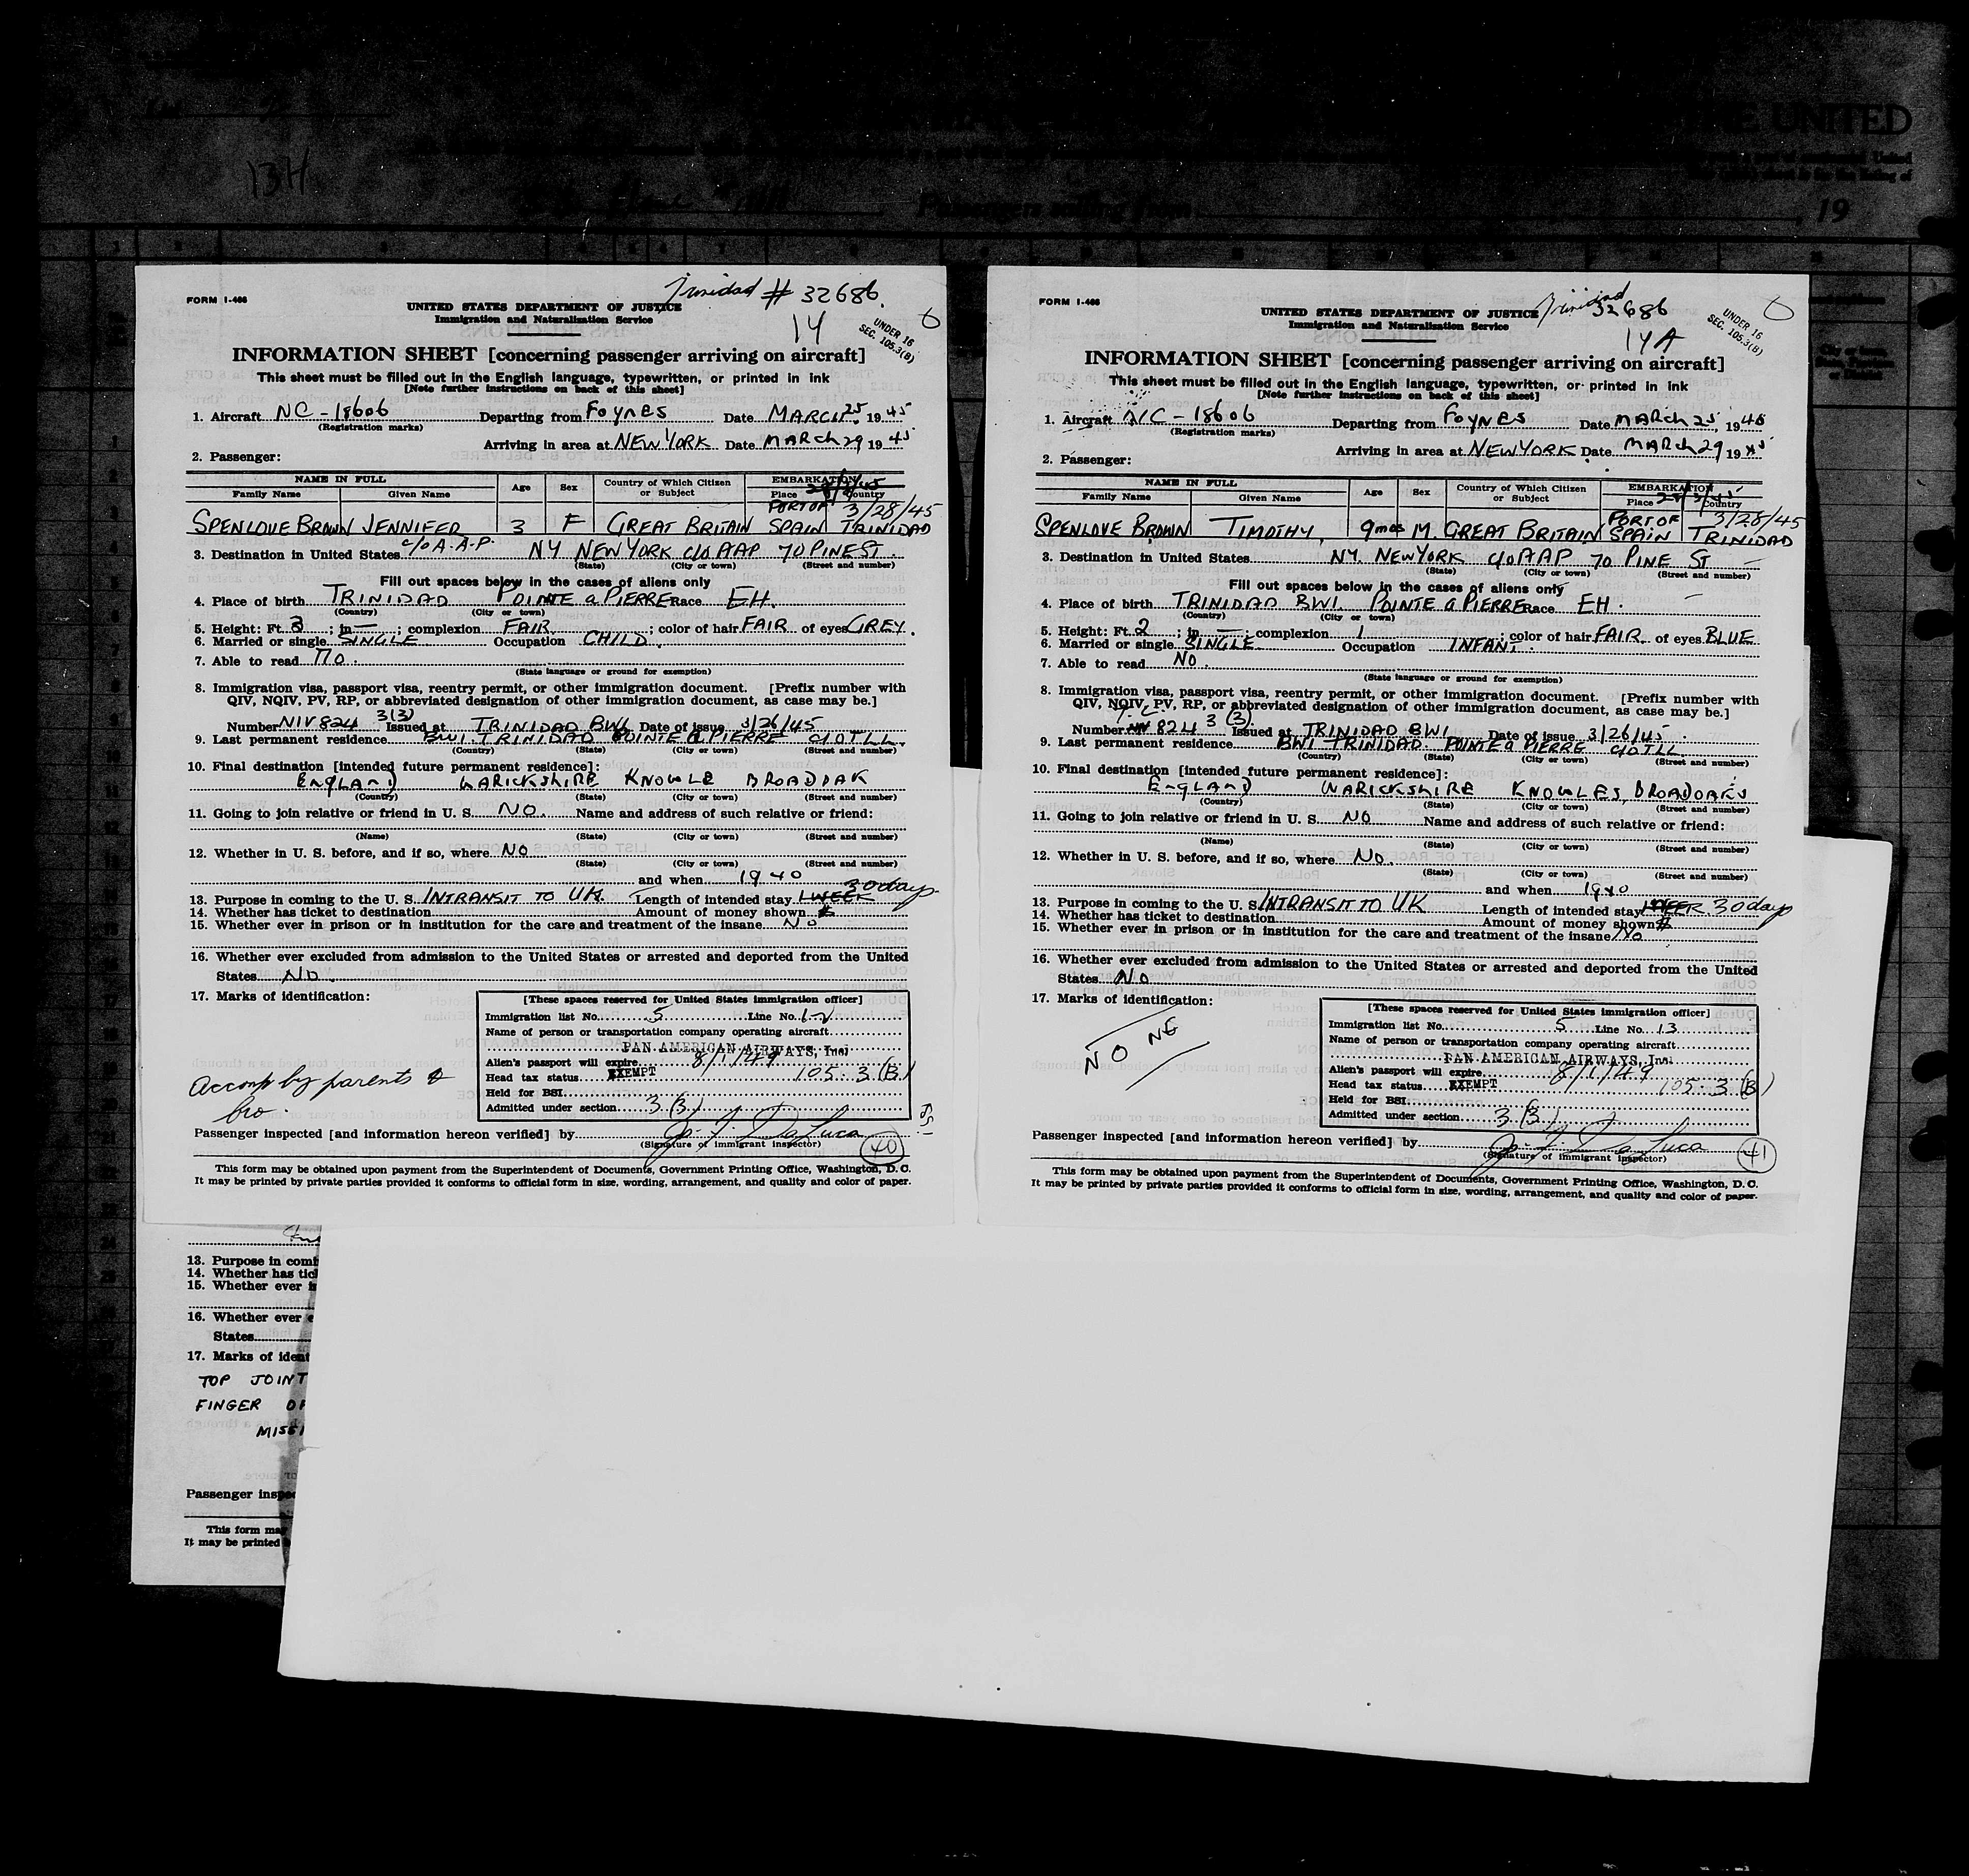 THE UNITED
13H
Passengers sailing from 19
FORM I-466
Trinidad # 32686
UNITED STATES DEPARTMENT OF JUSTICE
Immigration and Naturalization Service
14
UNDER 16
SEC. 105.3(B)
INFORMATION SHEET [concerning passenger arriving on aircraft]
This sheet must be filled out in the English language, typewritten, or printed in ink
[Note further instructions on back of this sheet]
1. Aircraft NC-18606 Departing from FOYNES Date MARCH 25, 1945
(Registration marks)
Arriving in area at NEW YORK Date MARCH 29 1945
2. Passenger:
NAME IN FULL Age Sex Country of Which Citizen or Subject EMBARKATION
Family Name Given Name Place Country
SPENLOVE BROWN JENNIFER 3 F GREAT BRITAIN PORT OF SPAIN 3/28/45 TRINIDAD
3. Destination in United States c/o A.A.P. NY NEW YORK c/o AAP 70 PINE ST.
(State) (City or town) (Street and number)
Fill out spaces below in the cases of aliens only
4. Place of birth TRINIDAD POINTE a PIERRE Race EH.
(Country) (City or town)
5. Height: Ft. 3; in —; complexion FAIR; color of hair FAIR of eyes GREY.
6. Married or single SINGLE Occupation CHILD.
7. Able to read NO.
(State language or ground for exemption)
8. Immigration visa, passport visa, reentry permit, or other immigration document. [Prefix number with
QIV, NQIV, PV, RP, or abbreviated designation of other immigration document, as case may be.]
Number NIV 824 3(3) Issued at TRINIDAD BWI Date of issue 3/26/45
9. Last permanent residence BWI TRINIDAD POINTE a PIERRE c/o TLL.
(Country) (State) (City or town) (Street and number)
10. Final destination [intended future permanent residence]:
ENGLAND WARICKSHIRE KNOWLE BROADOAK
(Country) (State) (City or town) (Street and number)
11. Going to join relative or friend in U. S. NO. Name and address of such relative or friend:
(Name) (State) (City or town) (Street and number)
12. Whether in U. S. before, and if so, where NO
(State) (City or town) (Street and number)
and when 1940
13. Purpose in coming to the U. S. INTRANSIT TO UK. Length of intended stay 1 WEEK 30 days
14. Whether has ticket to destination Amount of money shown $
15. Whether ever in prison or in institution for the care and treatment of the insane NO
16. Whether ever excluded from admission to the United States or arrested and deported from the United
States NO.
17. Marks of identification:
[These spaces reserved for United States immigration officer]
Immigration list No. 5 Line No. 12
Name of person or transportation company operating aircraft
PAN AMERICAN AIRWAYS, Inc.
Alien's passport will expire 8/1/49
Head tax status EXEMPT 105.3(B)
Held for BSI
Admitted under section 3(3)
Accomp by parents &
bro.
Passenger inspected [and information hereon verified] by J. F. DeLuca
(Signature of immigrant inspector)
40
This form may be obtained upon payment from the Superintendent of Documents, Government Printing Office, Washington, D. C.
It may be printed by private parties provided it conforms to official form in size, wording, arrangement, and quality and color of paper.
FORM I-466
Trinidad 32686
UNITED STATES DEPARTMENT OF JUSTICE
Immigration and Naturalization Service
14A
UNDER 16
SEC. 105.3(B)
INFORMATION SHEET [concerning passenger arriving on aircraft]
This sheet must be filled out in the English language, typewritten, or printed in ink
[Note further instructions on back of this sheet]
1. Aircraft NC-18606 Departing from FOYNES Date MARCH 25, 1945
(Registration marks)
Arriving in area at NEW YORK Date MARCH 29, 1945
2. Passenger:
NAME IN FULL Age Sex Country of Which Citizen or Subject EMBARKATION
Family Name Given Name Place Country
SPENLOVE BROWN TIMOTHY, 9mos M. GREAT BRITAIN PORT OF SPAIN 3/28/45 TRINIDAD
3. Destination in United States NY. NEW YORK c/o AAP 70 PINE ST
(State) (City or town) (Street and number)
Fill out spaces below in the cases of aliens only
4. Place of birth TRINIDAD BWI. POINTE a PIERRE Race EH.
(Country) (City or town)
5. Height: Ft. 2; in —; complexion 1; color of hair FAIR of eyes BLUE
6. Married or single SINGLE Occupation INFANT.
7. Able to read NO.
(State language or ground for exemption)
8. Immigration visa, passport visa, reentry permit, or other immigration document. [Prefix number with
QIV, NQIV, PV, RP, or abbreviated designation of other immigration document, as case may be.]
Number 824 3(3). Issued at TRINIDAD BWI Date of issue 3/26/45.
9. Last permanent residence BWI TRINIDAD POINTE a PIERRE c/o TLL
(Country) (State) (City or town) (Street and number)
10. Final destination [intended future permanent residence]:
ENGLAND WARICKSHIRE KNOWLES, BROADOAKS
(Country) (State) (City or town) (Street and number)
11. Going to join relative or friend in U. S. NO Name and address of such relative or friend:
(Name) (State) (City or town) (Street and number)
12. Whether in U. S. before, and if so, where NO.
(State) (City or town) (Street and number)
and when 1940
13. Purpose in coming to the U. S. INTRANSIT TO UK Length of intended stay 1 WEEK 30 days
14. Whether has ticket to destination Amount of money shown $
15. Whether ever in prison or in institution for the care and treatment of the insane NO
16. Whether ever excluded from admission to the United States or arrested and deported from the United
States NO
17. Marks of identification:
NONE
[These spaces reserved for United States immigration officer]
Immigration list No. 5 Line No. 13
Name of person or transportation company operating aircraft
PAN AMERICAN AIRWAYS, Inc.
Alien's passport will expire 8/1/49
Head tax status EXEMPT 105.3(B)
Held for BSI
Admitted under section 3(3)
Passenger inspected [and information hereon verified] by J. F. DeLuca
(Signature of immigrant inspector)
41
This form may be obtained upon payment from the Superintendent of Documents, Government Printing Office, Washington, D. C.
It may be printed by private parties provided it conforms to official form in size, wording, arrangement, and quality and color of paper.
13. Purpose in comi
14. Whether has tick
15. Whether ever i
16. Whether ever e
States
17. Marks of ident
TOP JOINT
FINGER OF
MISSI
Passenger inspec
This form may
It may be printed